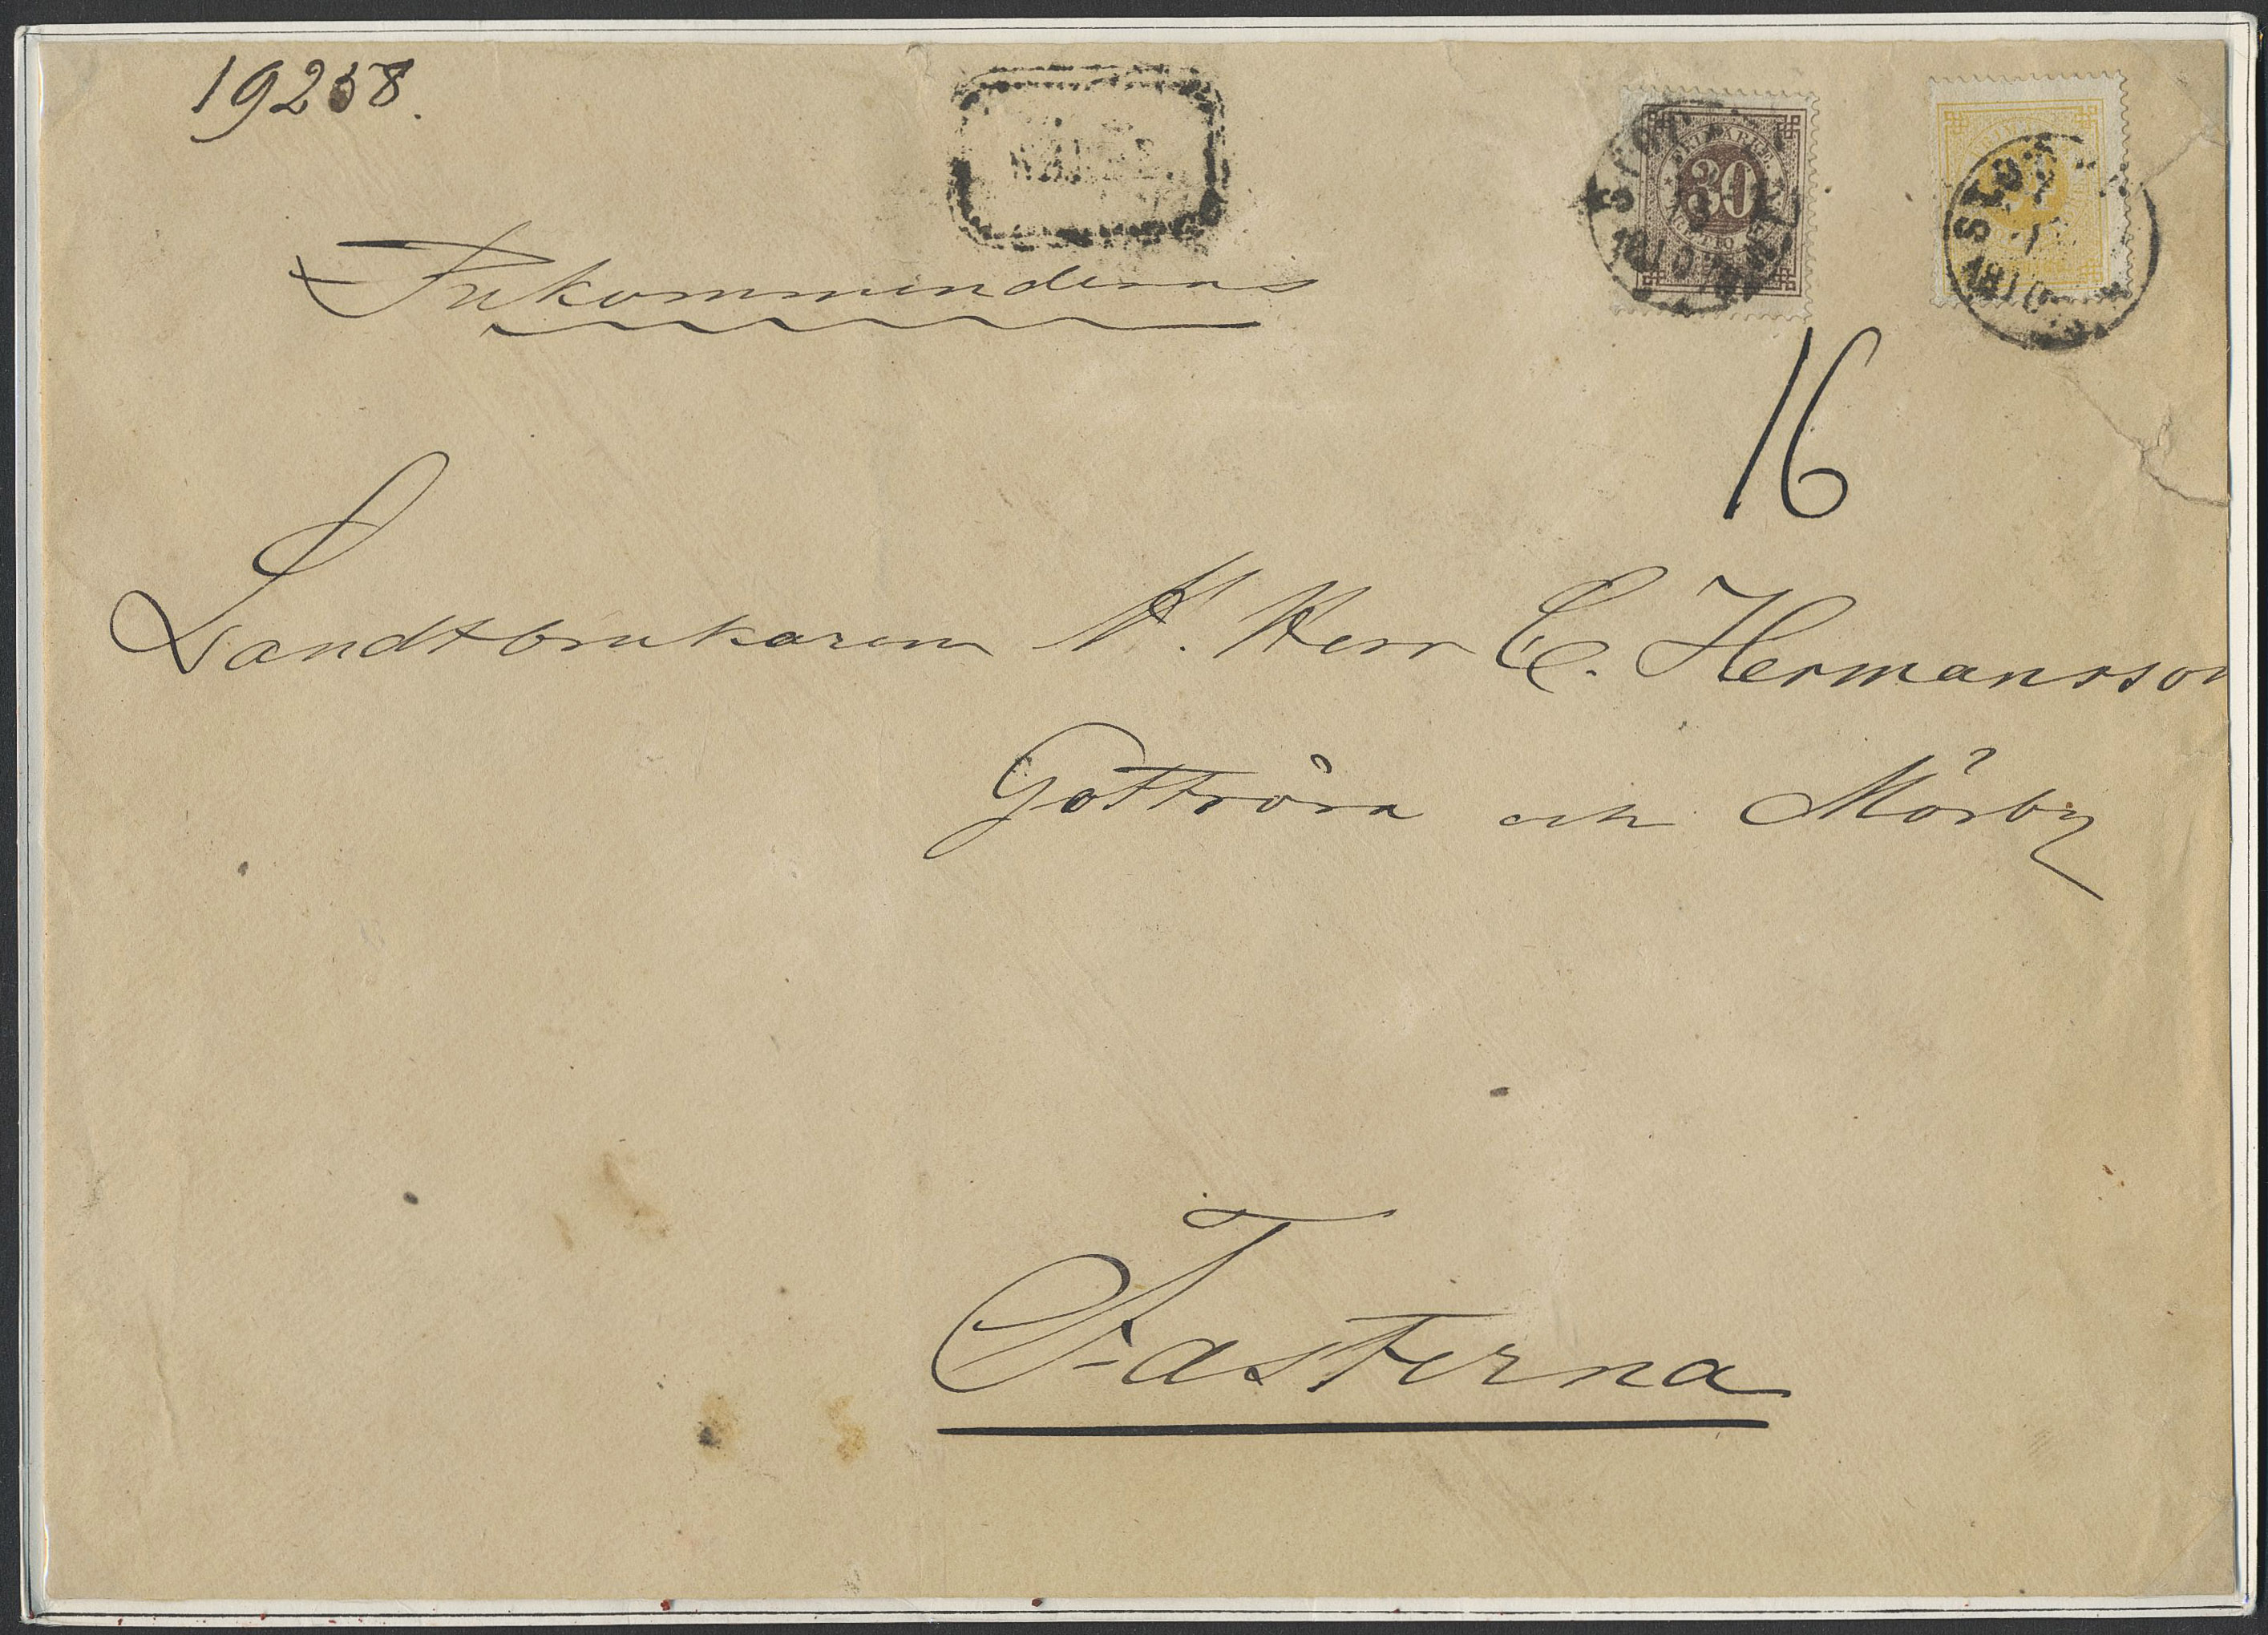 19258.
Rekommenderas
30
TRETTIO ÖRE
16
Landtbrukaren H. Herr C. Hermansson
Gottröra och Mörby
Fasterna